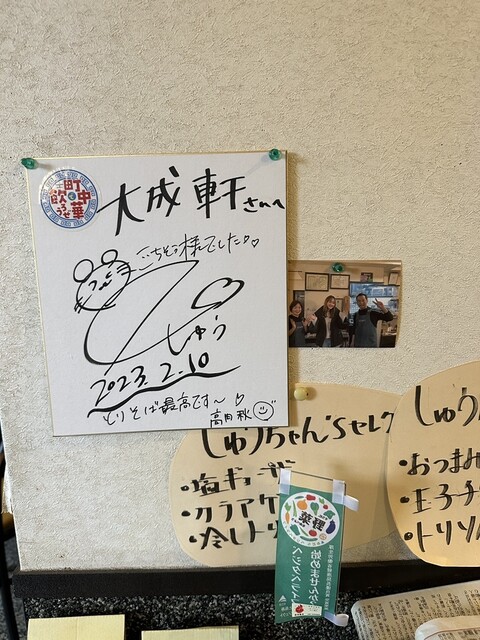 町中華で飲ろうぜ
大成軒さんへ
ごちそう様でした♡♡
しゅう
2023.2.10
とりそば最高です〜♡
高月秋
しゅうちゃん'sセレク
・塩ギョーザ
・カラアゲ
・冷しトリ
しゅう
・おつまみ
・玉子チ
・トリソ
野菜
始めませんか
ベジタベライフ